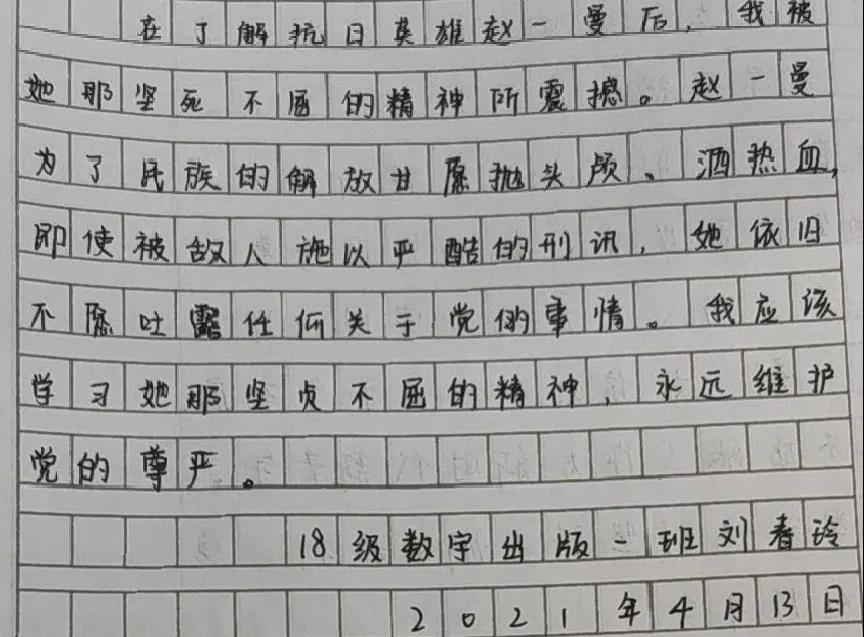 在了解抗日英雄赵一曼后，我被
她那坚死不屈的精神所震撼。赵一曼
为了民族的解放甘愿抛头颅、洒热血，
即使被敌人施以严酷的刑讯，她依旧
不愿吐露任何关于党的事情。我应该
学习她那坚贞不屈的精神，永远维护
党的尊严。
18级数字出版一班刘春玲
2021年4月13日